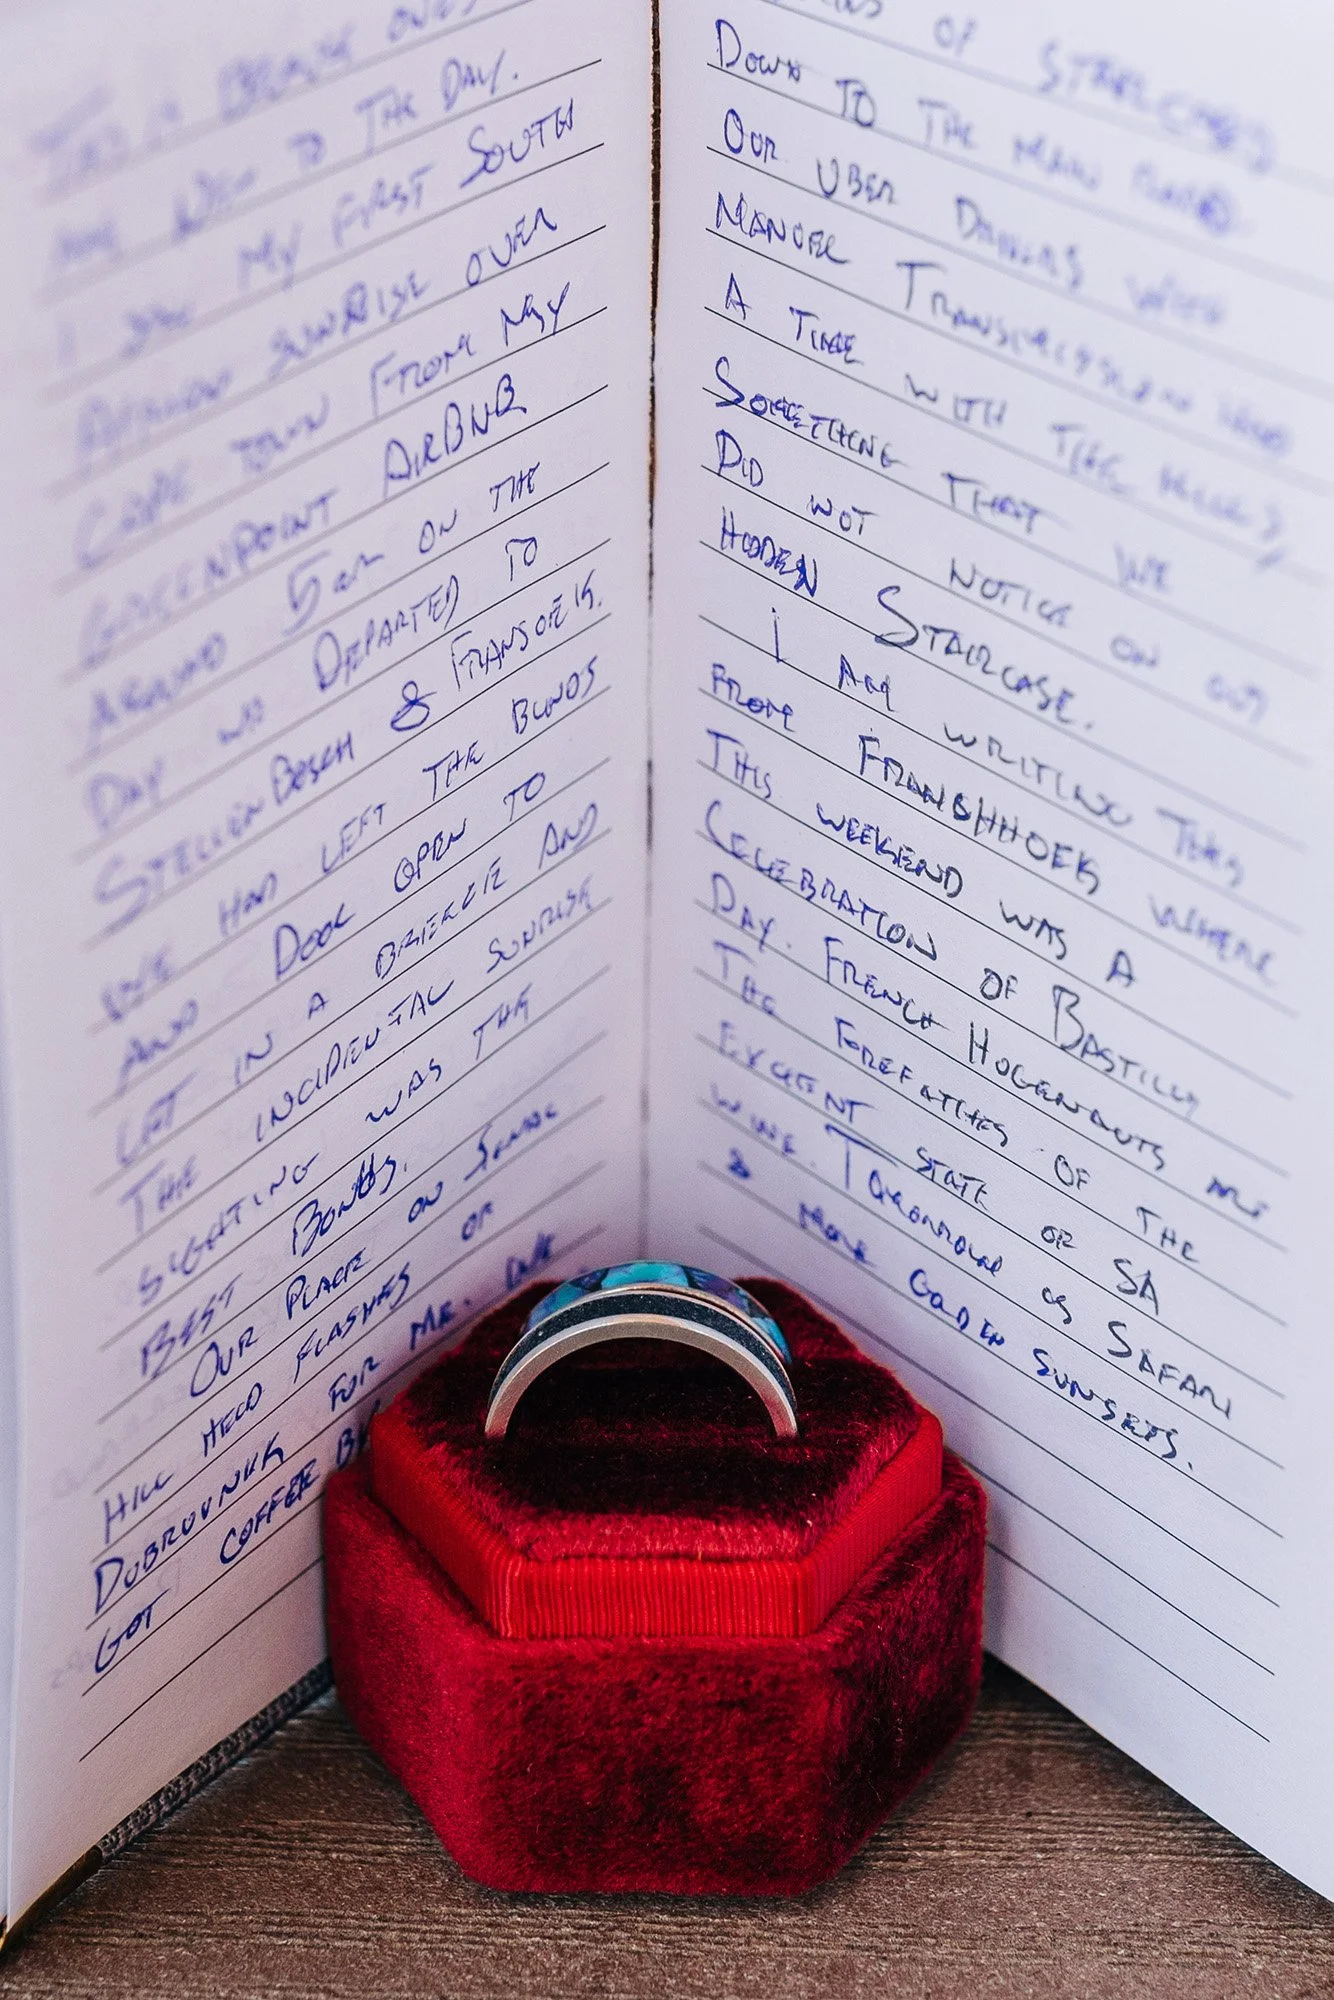 THE DAY.
MY FIRST SOUTH
AFRICAN SUNRISE OVER
CAPE TOWN FROM MY
GREENPOINT AIRBNB
AROUND 5am ON THE
DAY WE DEPARTED TO
STELLENBOSCH & FRANSOEK.
WE HAD LEFT THE BLINDS
AND DOOR OPEN TO
LET IN A BREEZE AND
THE INCIDENTAL SUNRISE
SIGHTING WAS THE
BEST BONUS.
OUR PLACE ON
HILL HELD FLASHES OF
DUBROVNIK FOR ME. WE
GOT COFFEE
OF STAIRCASES
DOWN TO THE MAIN
OUR UBER DRIVERS WITH
MANUEL TRANSMISSION HAD
A TIME WITH THE HILLS,
SOMETHING THAT WE
DID NOT NOTICE ON OUR
HIDDEN STAIRCASE.
I AM WRITING THIS
FROM FRANSHHOEK WHERE
THIS WEEKEND WAS A
CELEBRATION OF BASTILLE
DAY. FRENCH HOGENAUTS
THE FOREFATHES OF THE
EXCIENT STATE OF SA
WINE. TOMORROW IS SAFARI
& MORE GOLDEN SUNSETS.